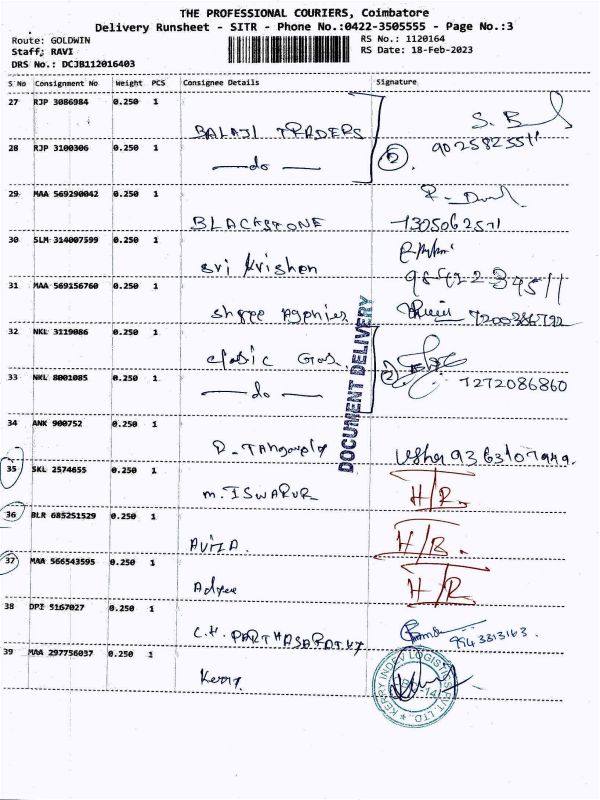 THE PROFESSIONAL COURIERS, Coimbatore
Delivery Runsheet - SITR - Phone No.:0422-3505555 - Page No.:3
Route: GOLDWIN
Staff: RAVI
DRS No.: DCJB112016403
RS No.: 1120164
RS Date: 18-Feb-2023
S No Consignment No Weight PCS Consignee Details Signature
27 RJP 3086984 0.250 1
BALAJI TRADERS S. B
28 RJP 3100306 0.250 1
—do— 2 9025825511
29 MAA 569290042 0.250 1
BLACKSTONE
30 SLM 314007599 0.250 1
Sri Krishon
31 MAA 569156760 0.250 1
7200386792
32 NKL 3119086 0.250 1
Clasic Gas 2
33 NKL 8001085 0.250 1
—do— 7272086860
DOCUMENT DELIVERY
34 ANK 900752 0.250 1
35 SKL 2574655 0.250 1
M. ISWARUR H/R.
36 BLR 685251529 0.250 1
37 MAA 566543595 0.250 1
H/R
38 DPI 5167027 0.250 1
C.H. PARTHASARATHY 9943313163.
39 MAA 297756037 0.250 1
Kerry
KERRY INDEV LOGISTICS PVT. LTD.